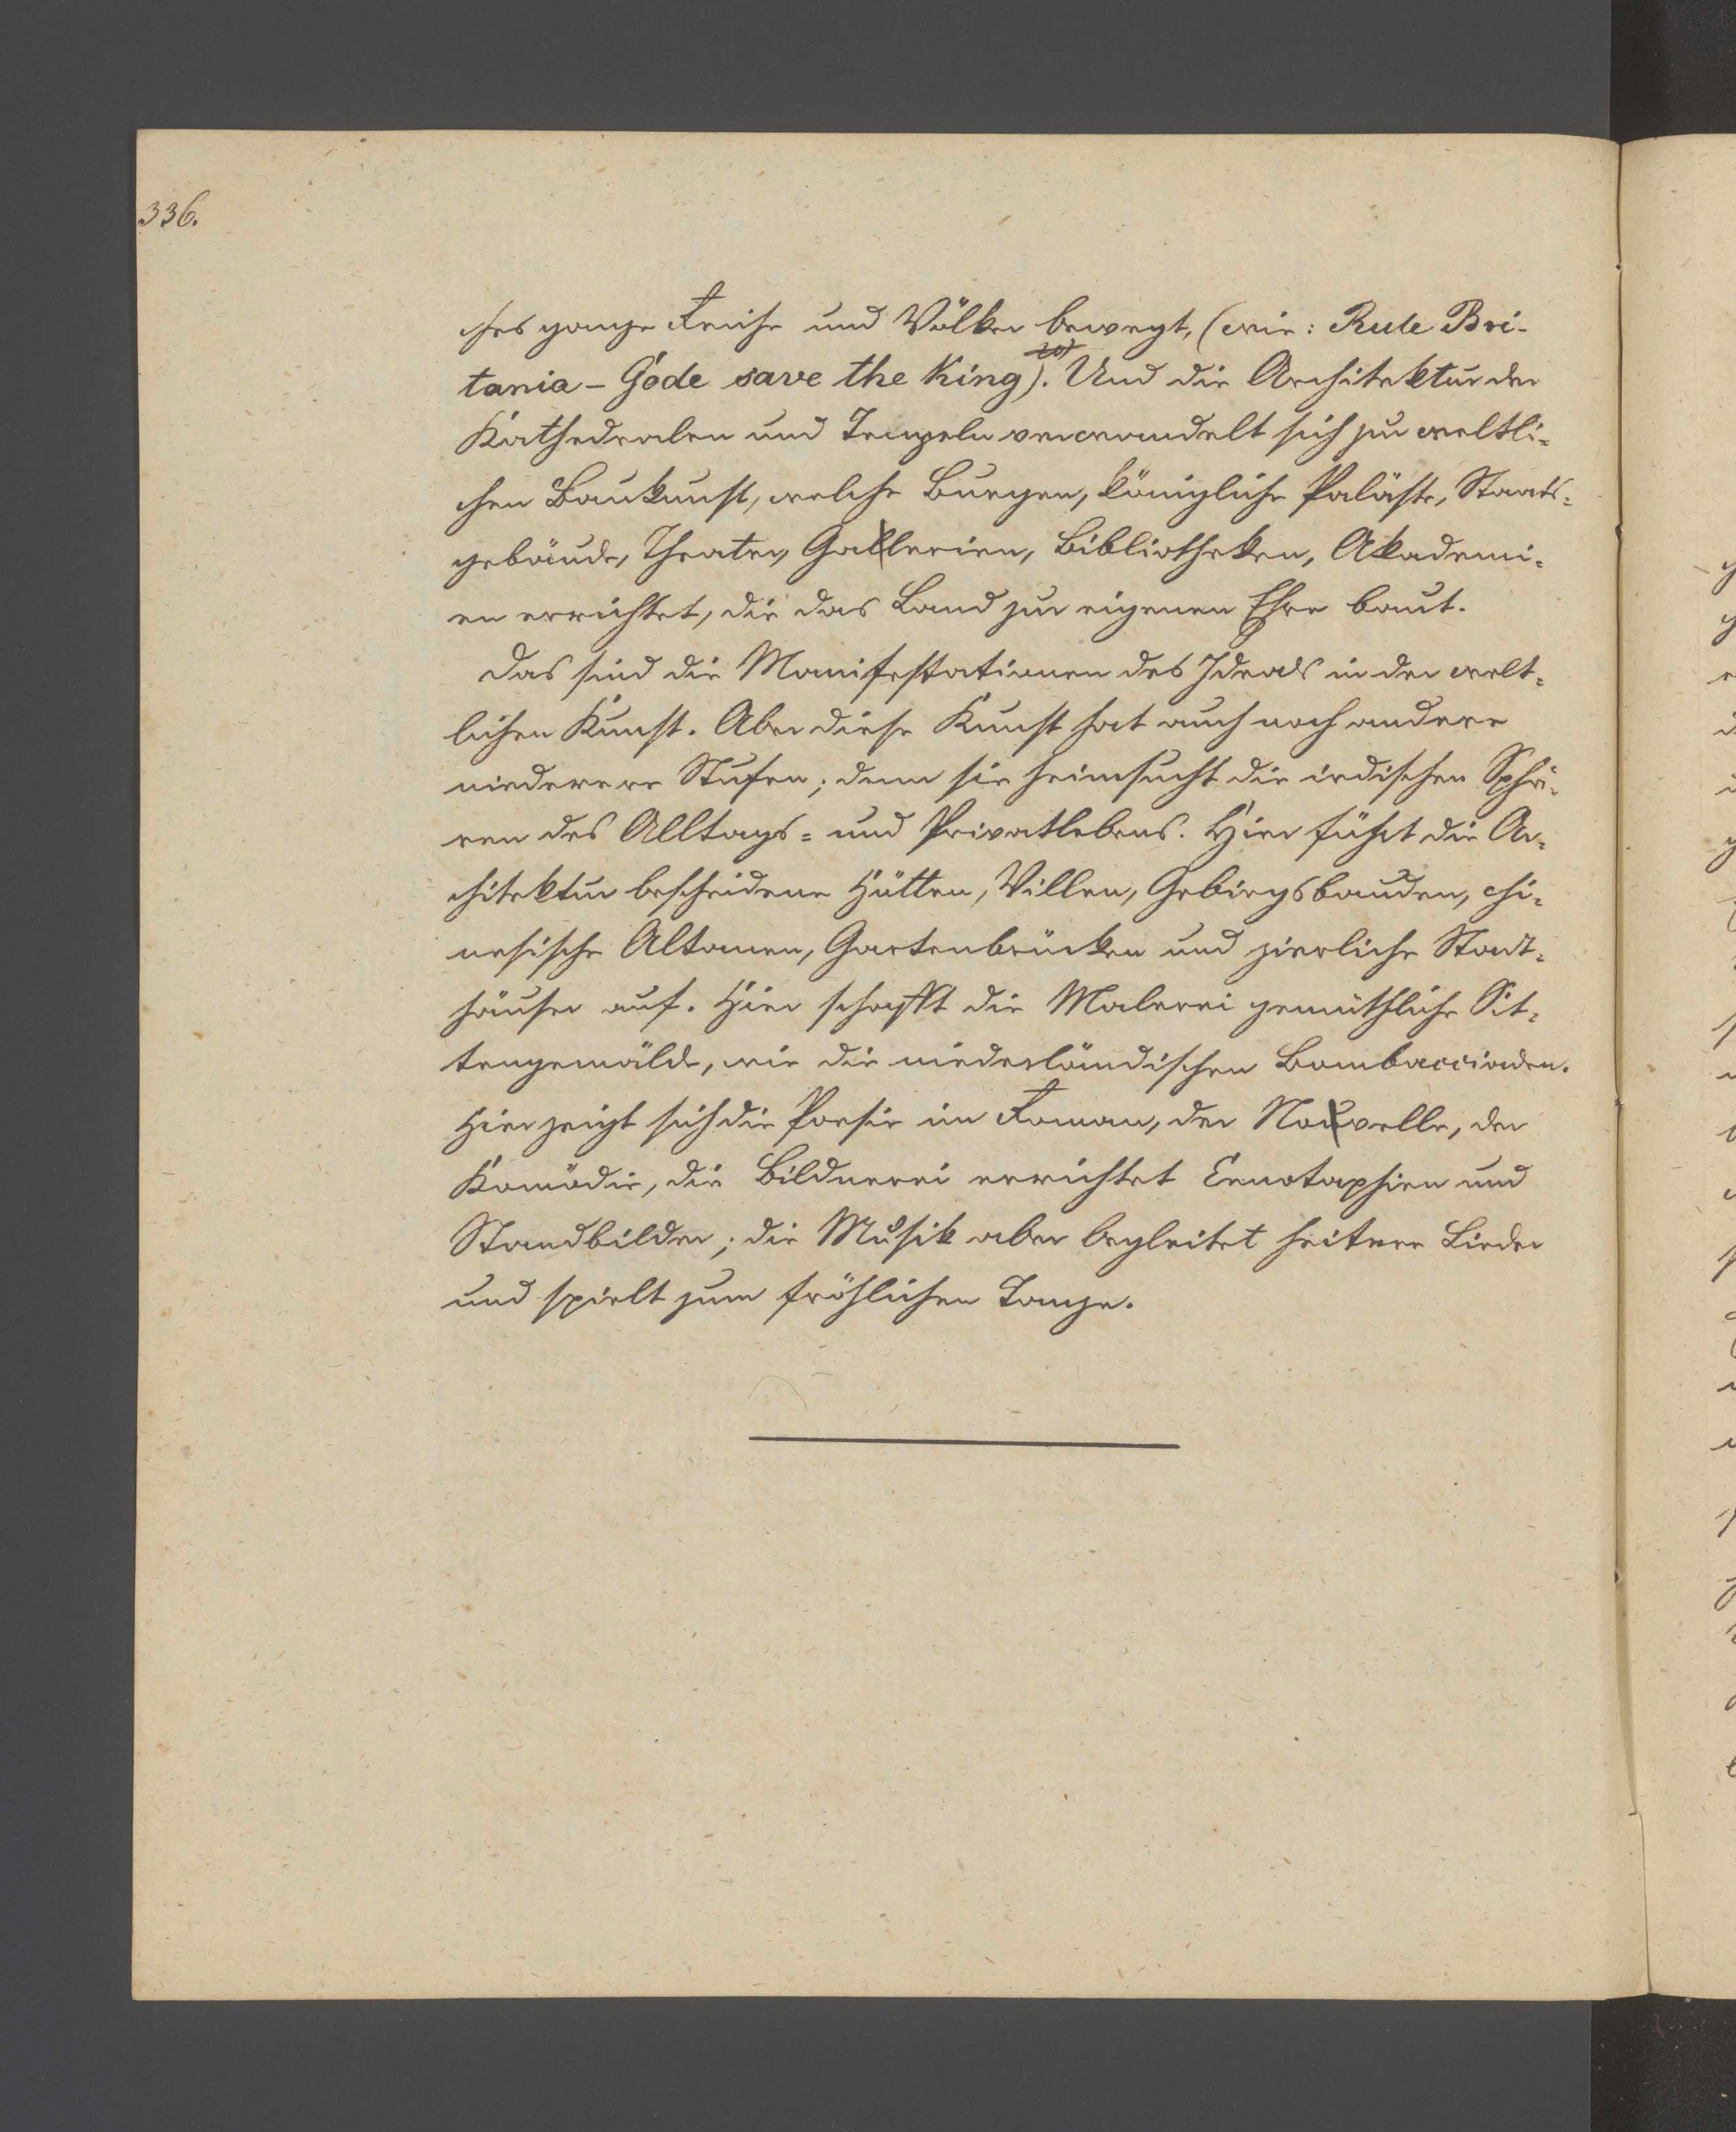 336.
ches ganze Reiche und Völker bewegt, (wie: Rule Bri-
tania - Gode save the King). Und die Architektur der
Kathedralen und Tempeln verwandelt sich zur weltli-
chen Baukunst, welche Burgen, königliche Paläste, Staats-
gebäude, Theater, Gallerien, Bibliotheken, Akademi-
en errichtet, die das Land zur eigenen Ehre baut.
Das sind die Manifestationen des Ideals in der welt-
lichen Kunst. Aber diese Kunst hat auch noch andere
niederere Stufen; denn sie heimsucht die irdischen Sphä-
ren des Alltags- und Privatlebens. Hier führt die Ar-
chitektur bescheidene Hütten, Villen, Gebirgsbauden, chi-
nesische Altanen, Gartenbrücken und zierliche Stadt-
häuser auf. Hier schafft die Malerei gemüthliche Sit-
tengemälde, wie die niederländischen Bambocciaden.
Hier zeigt sich die Poesie im Roman, der Nouvelle, der
Komödie, die Bildnerei errichtet Cenotaphien und
Standbilder; die Musik aber begleitet heitere Lieder
und spielt zum fröhlichen Tanze.